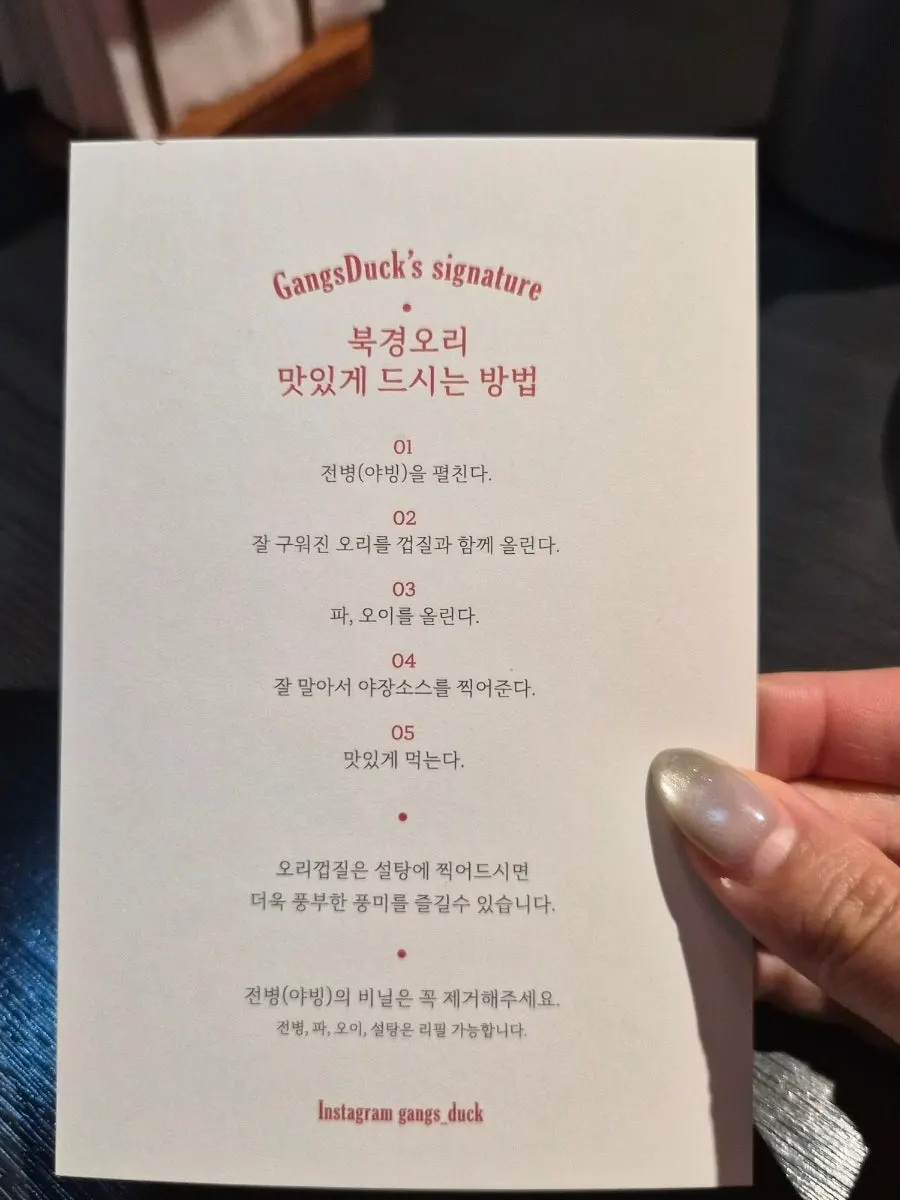 GangsDuck's signature
북경오리
맛있게 드시는 방법
01
전병(야빙)을 펼친다.
02
잘 구워진 오리를 껍질과 함께 올린다.
03
파, 오이를 올린다.
04
잘 말아서 야장소스를 찍어준다.
05
맛있게 먹는다.
오리껍질은 설탕에 찍어드시면
더욱 풍부한 풍미를 즐길수 있습니다.
전병(야빙)의 비닐은 꼭 제거해주세요.
전병, 파, 오이, 설탕은 리필 가능합니다.
Instagram gangs_duck